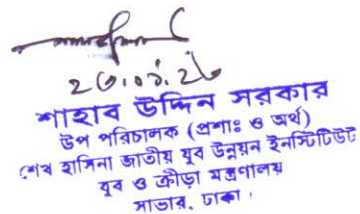 শাহাব উদ্দিন সরকার
উপ পরিচালক (প্রশাঃ ও অর্থ)
শেখ হাসিনা জাতীয় যুব উন্নয়ন ইনস্টিটিউট
যুব ও ক্রীড়া মন্ত্রণালয়
সাভার, ঢাকা।